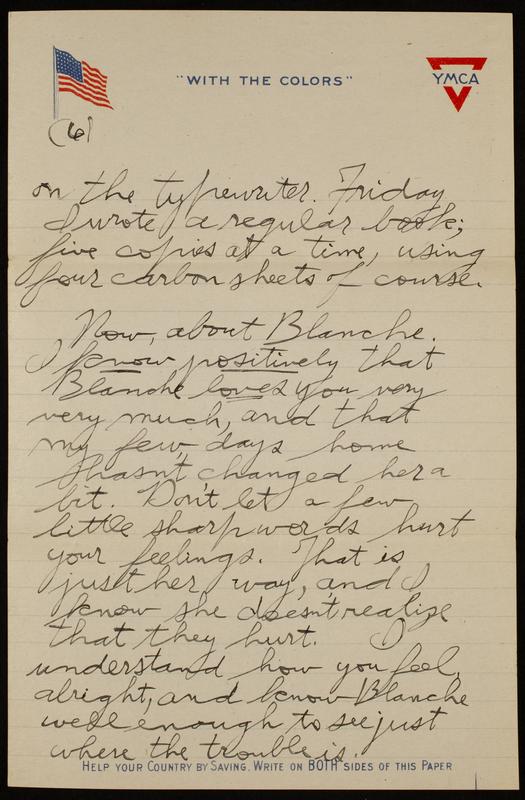 "WITH THE COLORS"
YMCA
(6)
on the typewriter. Friday
I wrote a regular book;
five copies at a time, using
four carbon sheets of course.
Now, about Blanche.
I know positively that
Blanche loves you very
very much, and that
my few, days home
hasn't changed her a
bit. Don't let a few
little sharp words hurt
your feelings. That is
just her way, and I
know she doesn't realize
that they hurt. I
understand how you feel,
alright, and know Blanche
well enough to see just
where the trouble is.
HELP YOUR COUNTRY BY SAVING. WRITE ON BOTH SIDES OF THIS PAPER